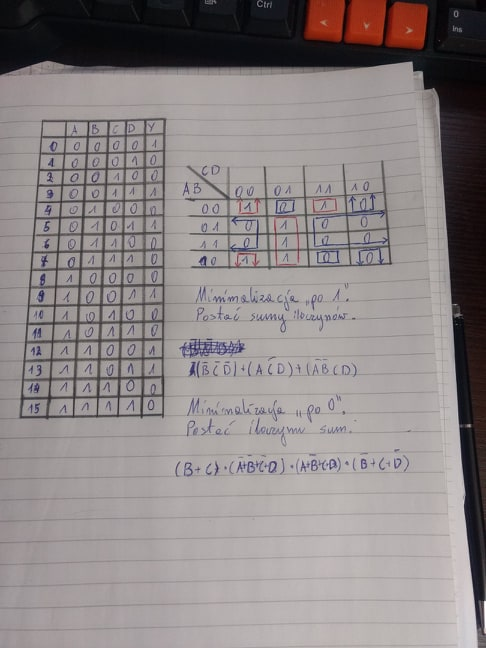 Ctrl
0
Ins
A B C D Y
0 0 0 0 0 1
1 0 0 0 1 0
2 0 0 1 0 0
3 0 0 1 1 1
4 0 1 0 0 0
5 0 1 0 1 1
6 0 1 1 0 0
7 0 1 1 1 0
8 1 0 0 0
9 1 0 0 1 1
10 1 0 1 0 0
11 1 0 1 1 0
12 1 1 0 0 1
13 1 1 0 1 1
14 1 1 1 0 0
15 1 1 1 1 0
CD
AB
00 01 11 10
00 1 0 1 0
01 0 1 0 0
11 0 1 0 0
10 1 1 0 0
Minimalizacja „po 1".
Postać sumy iloczynów.
(B̅ C̅ D̅) + (A C̅ D) + (A̅ B̅ C D)
Minimalizacja „po 0".
Postać iloczynu sum.